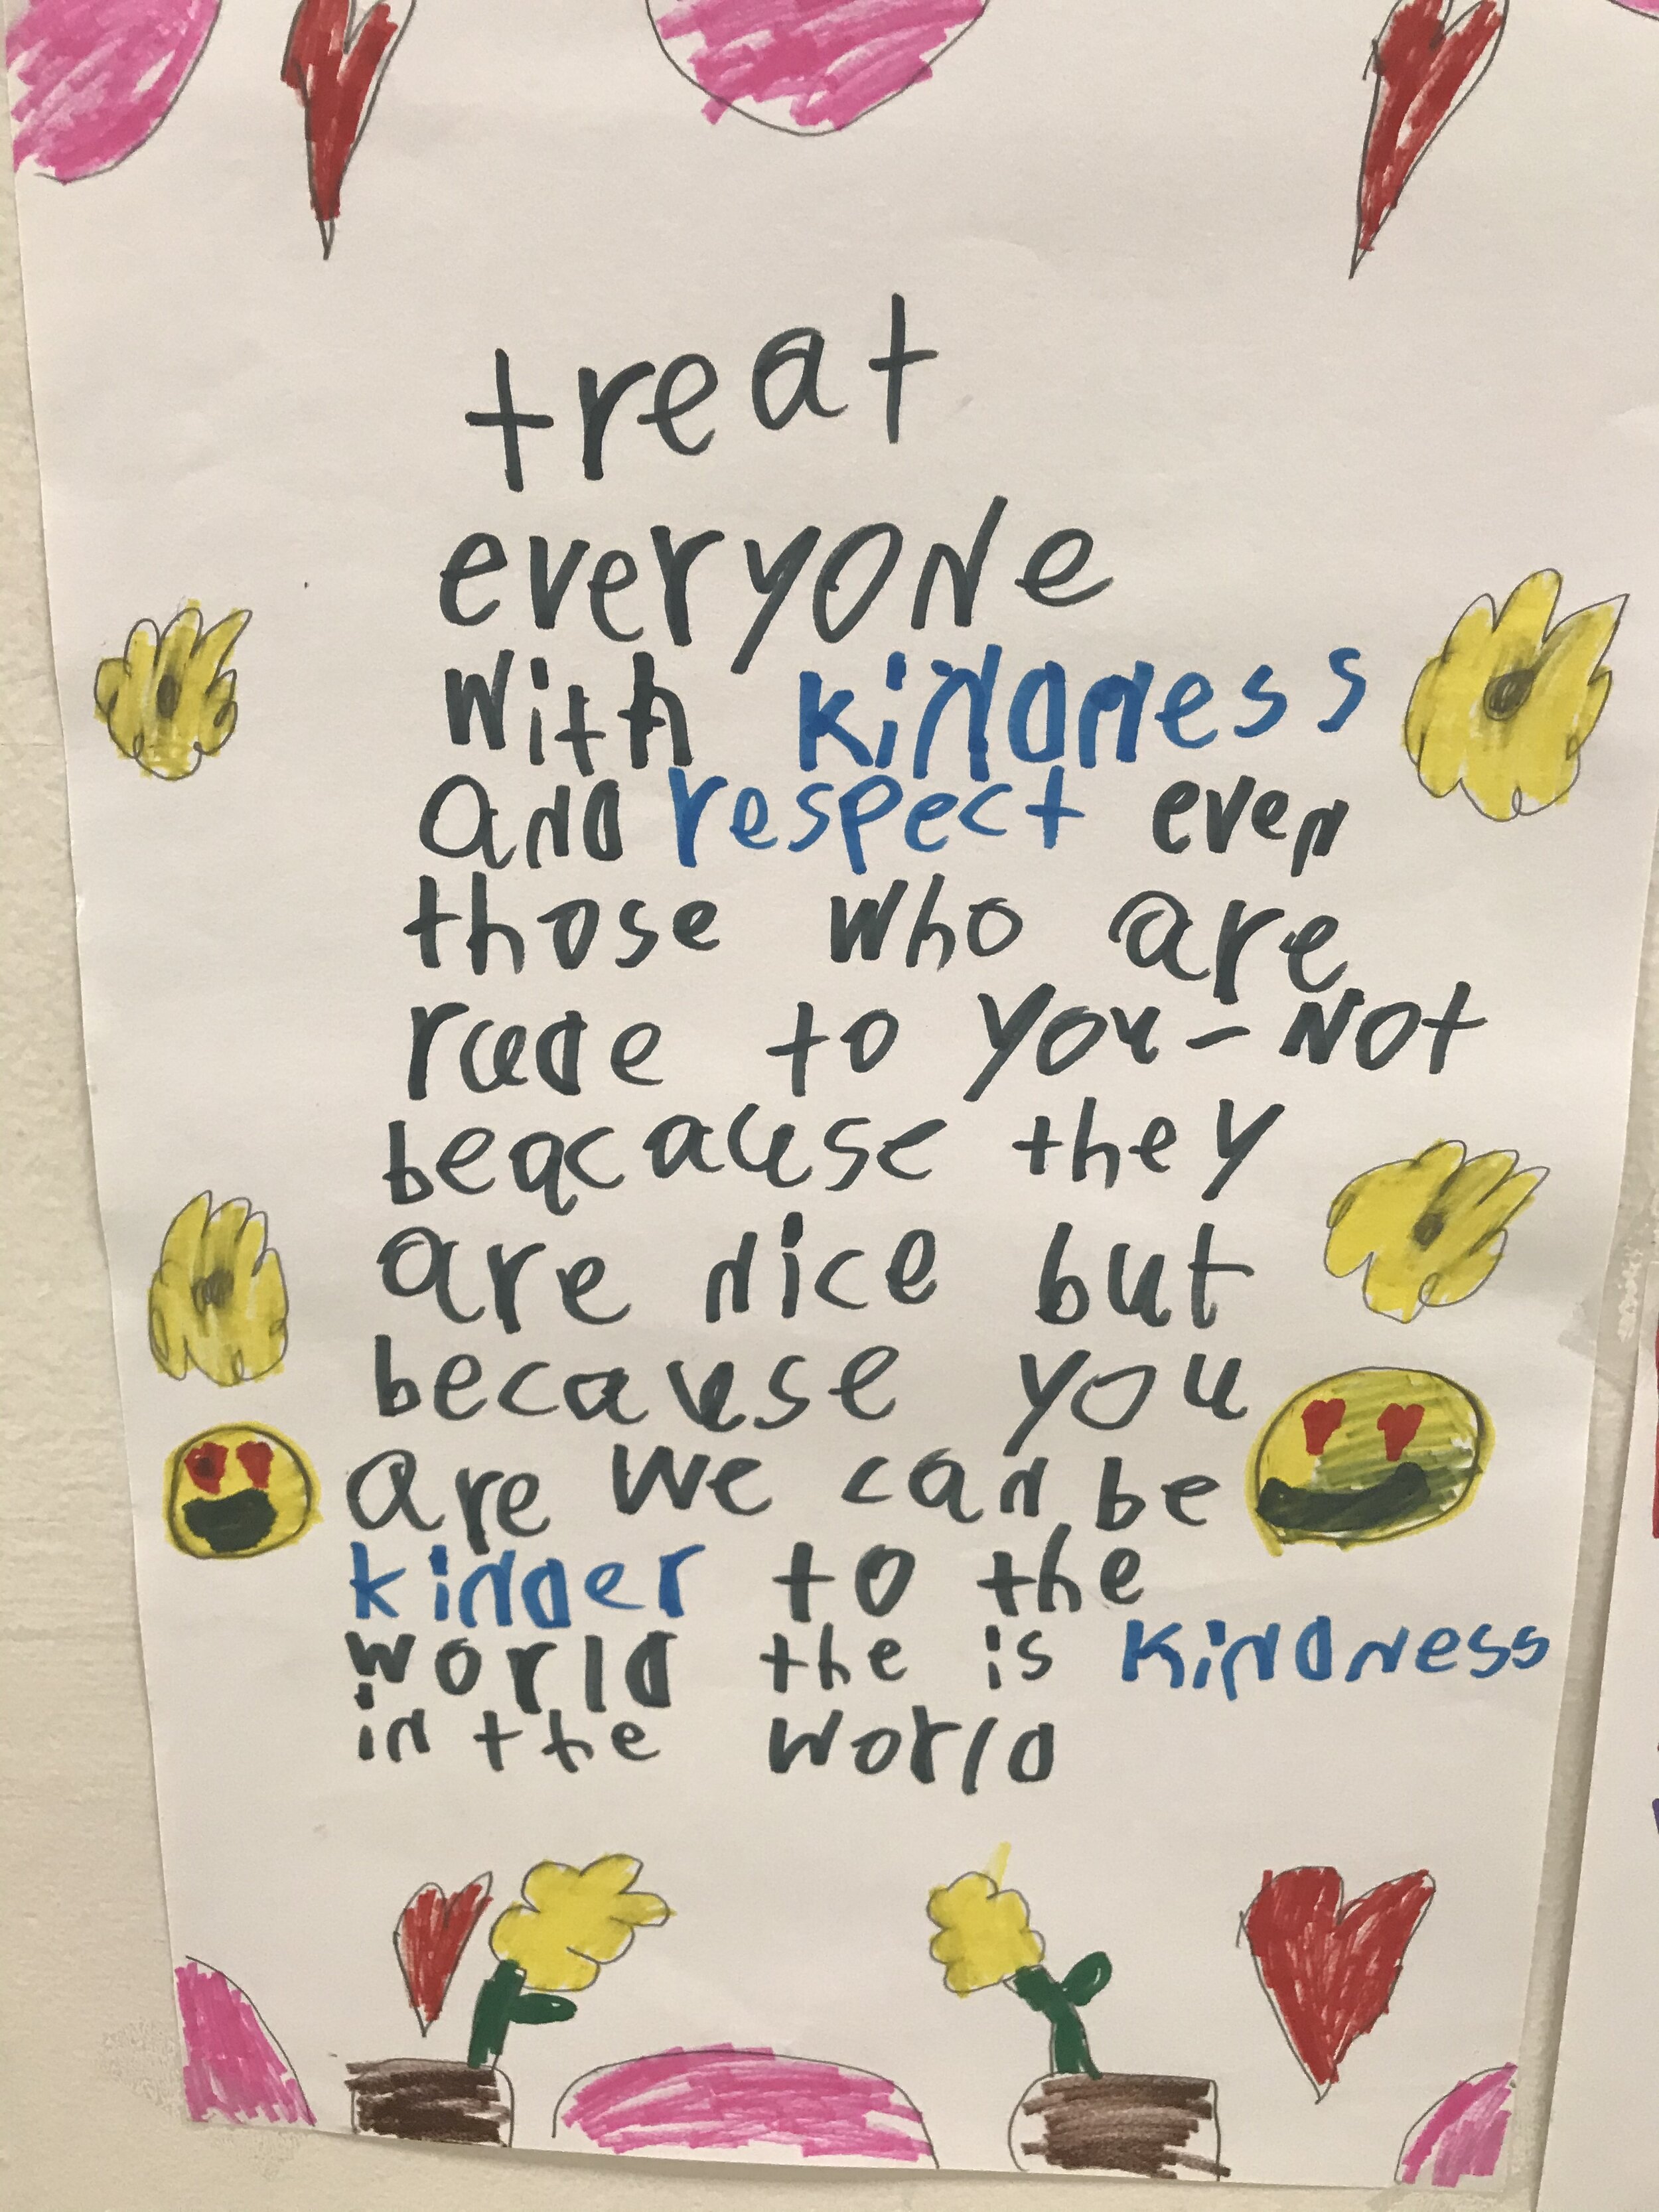 treat
everyone
with kindness
and respect even
those who are
rude to you - Not
beqcause they
are nice but
because you
are we can be
kinder to the
world the is kindness
in the world